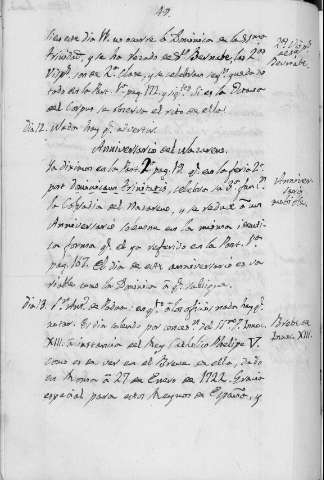 49.
Si en este dia 11. ocurre la Dominica de la SSma.
Trinidad, y se ha rezado de Sn. Bernabe, las 2as.
Visps. son de 2a. Clase, y se celebran segn. queda no-
tado en la Part. 1a. pag. 172. y sigtes. Si es la Octava
del Corpus se observa el rito de ella.
2as. Visps.
de Sn.
Bernabe.
Dia 12. Nada hay q. advertir.
Anniversario del Nazareno.
Ya diximos en la Part. 2a. pag. 12. q. en la feria 2a.
post Dominicam Trinitatis, celebra su
la Cofradia del Nazareno, y se reduce à un
Anniversario solemne en la misma identica
forma q. el ya referido en la Part. 1a.
pag. 167. El dia de este anniversario es va-
riable como la Dominica à q. se sigue.
Anniver-
sario
movible.
Dia 13. Sn. Anto. de Padua: en qto. à los oficios nada hay q.
notar. Es dia colendo por concesn. del Sto. Pe. Innoc.
XIII. à instancia del Rey Catholico Phelipe V.
como es de ver en el Breve de ello, dado
en Roma à 27 de Enero de 1722. Gracia
especial para estos Reynos de España, y
Breve de
Innoc. XIII.